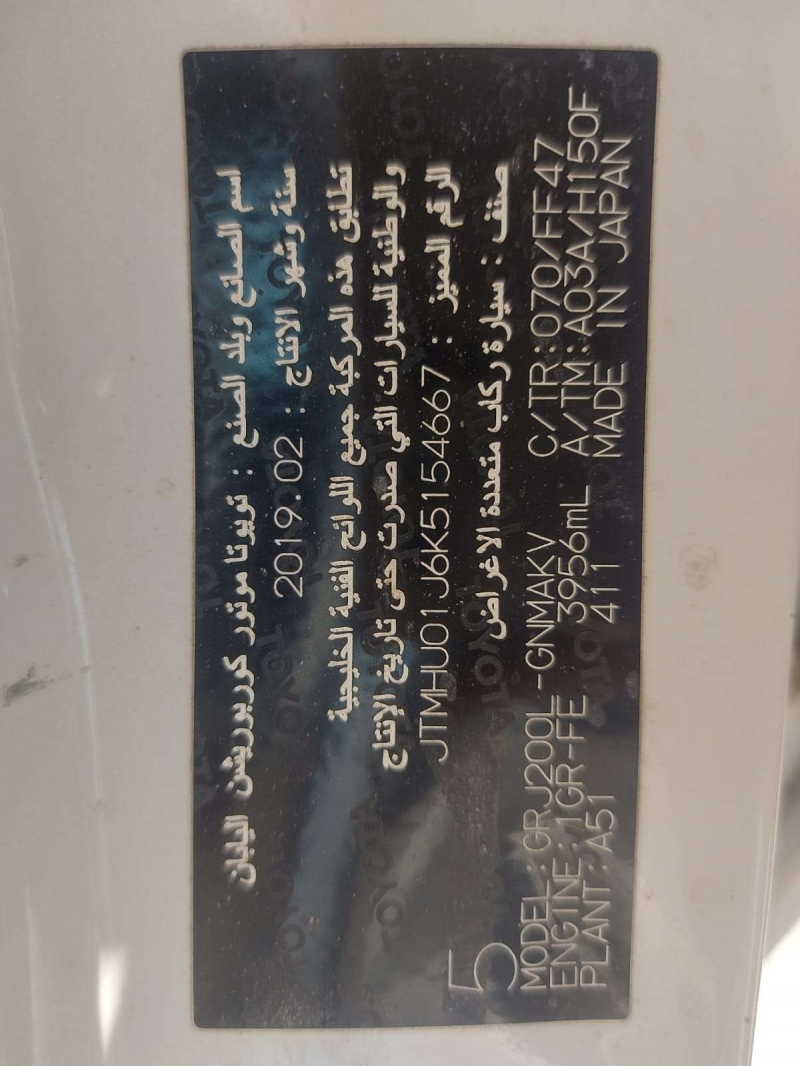 اسم الصانع وبلد الصنع : تويوتا موتور كوربوريشن اليابان
سنة وشهر الانتاج : 2019.02
تطابق هذه المركبة جميع اللوائح الفنية الخليجية
والوطنية للسيارات التي صدرت حتى تاريخ الإنتاج
الرقم المميز : JTMHU01J6K5154667
صنف : سيارة ركاب متعددة الاغراض
5
MODEL:GRJ200L-GNMAKV C/TR:070/FF47
ENGINE:1GR-FE 3956mL A/TM:A03A/H150F
PLANT:A51 411 MADE IN JAPAN